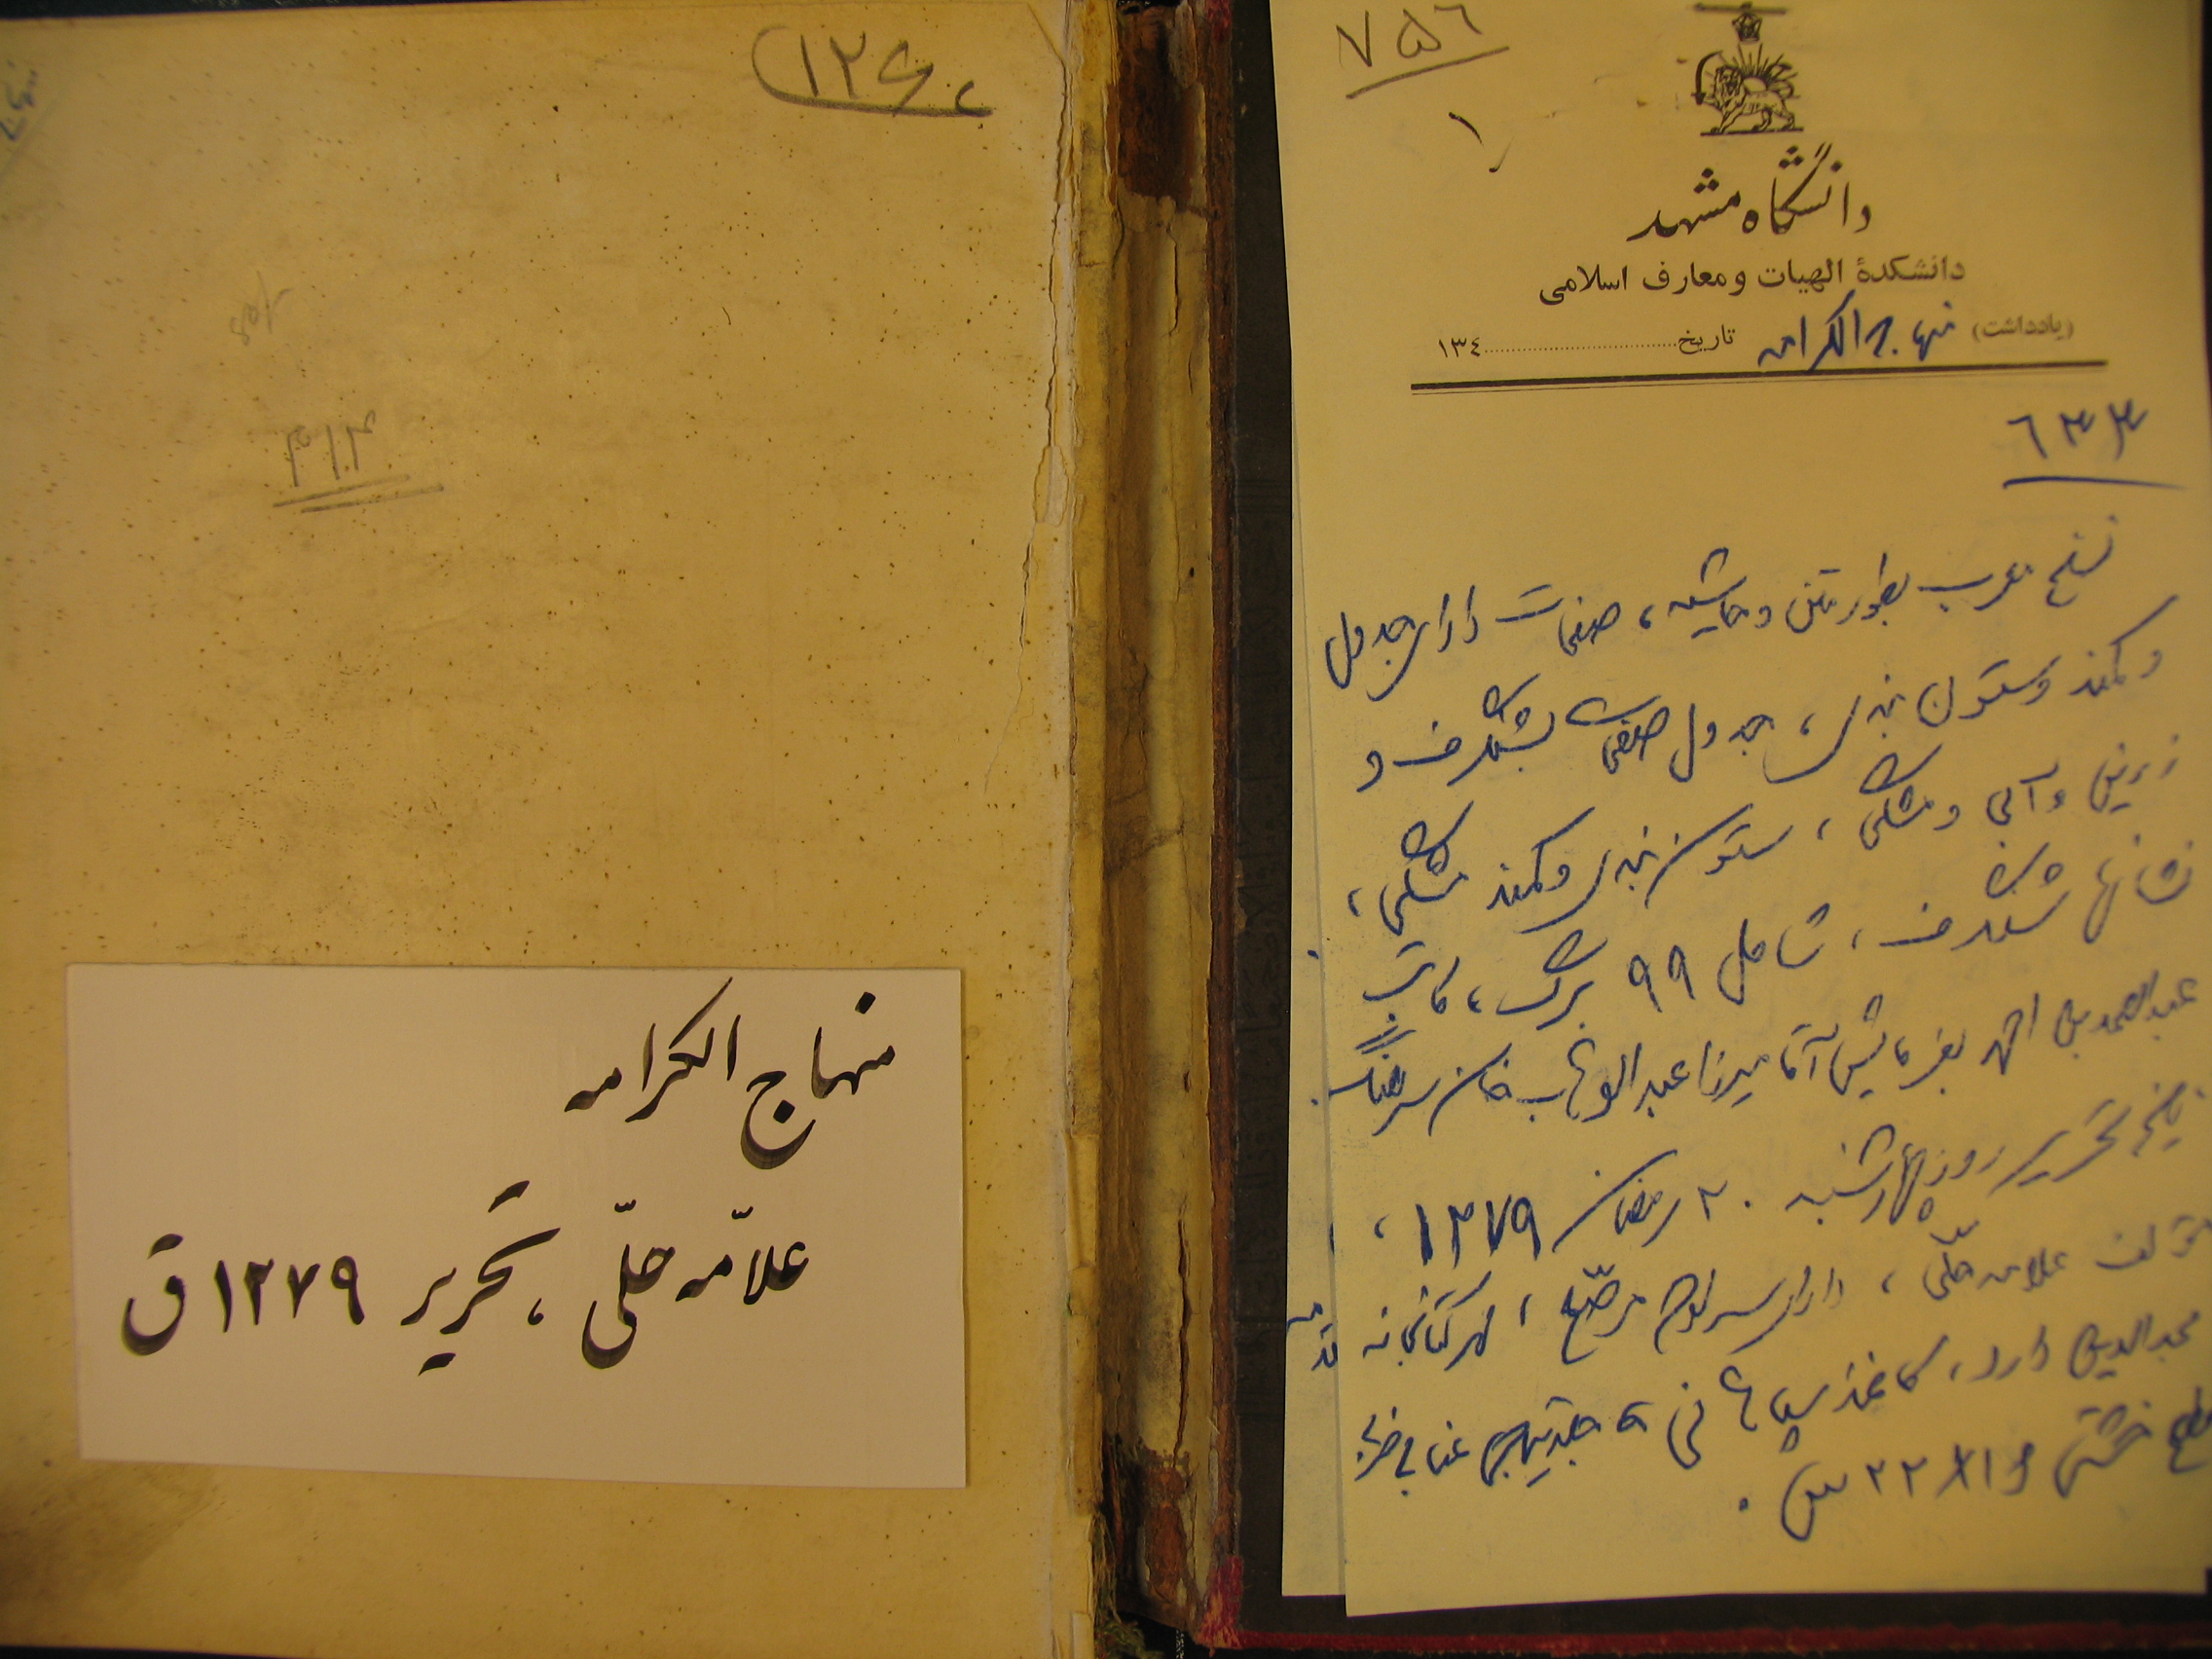 منهاج الکرامه
علاّمه حلّی ، تحریر ۱۲۷۹ ق
۷۵۶
۱
دانشگاه مشهد
دانشکدهٔ الهیات و معارف اسلامی
(یادداشت) منهاج الکرامه تاریخ ............ ۱۳٤
٦۳۳
نسخ معرب بطور متن و حاشیه ، صفحات دارای جدول
و کمند و ستون بندی ، جدول صفحات بشنگرف و
زرین و آبی و مشکی ، ستون بندی و کمند مشکی ،
نشانها شنگرف ، شامل ۹۹ برگ ، کاتب
عبدالصمد بن احمد بفرمایش آقا میرزا عبدالوهاب خان سرهنگ
تاریخ تحریر روز چهارشنبه ۲۰ رمضان ۱۲۷۹ ،
مؤلف علامه حلّی ، دارای سرلوح مرصّع ، مهر کتابخانه
مجدالدین دارد ، کاغذ سپاهانی ، جلد تیماج عنابی ضربی
قطع خشتی ۲۲ س .